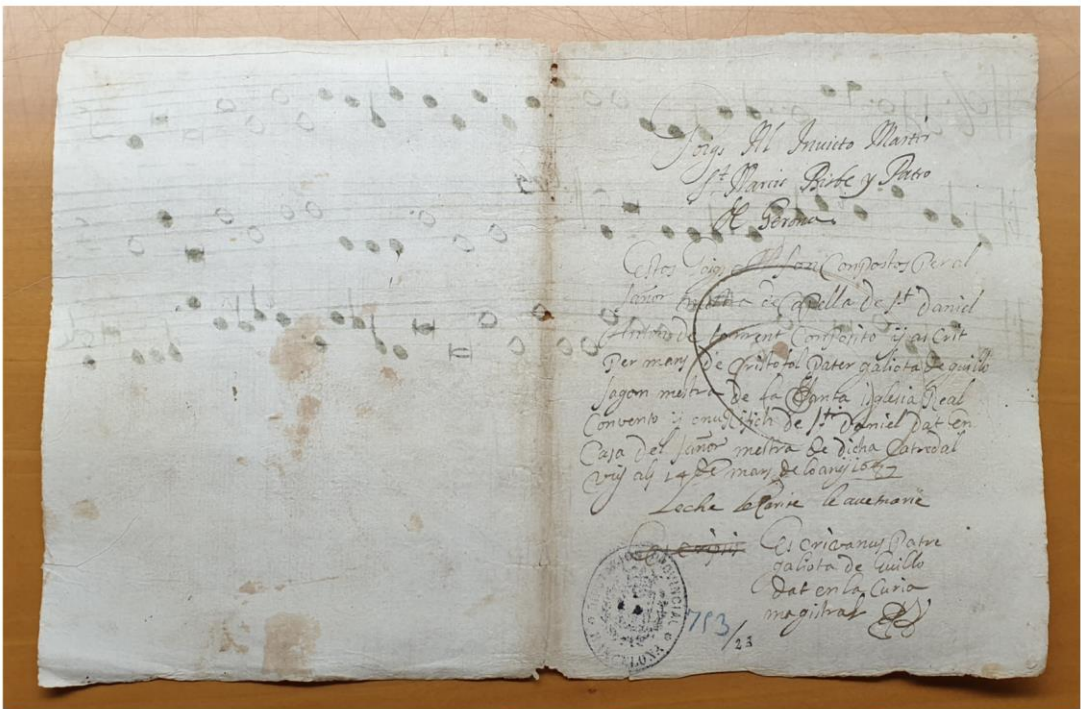 Goigs Al Invicto Martir
St Narcis Bisbe y Patro
De Gerona
Estos Goigs son Compostos Per al
señor mestra de Capella de St Daniel
Composito y ascrit
Per mans de Cristofal Pater galiota de guillo
sagon mestra de la Santa iglesia Real
Convento y de St Daniel dat en
Casa Del señor mestra de dicha Catredal
Vuy als 14 de mars de lo any 16
Leche le leavemarie
Es crivanus Patre
galiota de Guillo
dat en la Curia
magistral
PROVINCIAL
BARCELONA
753/23